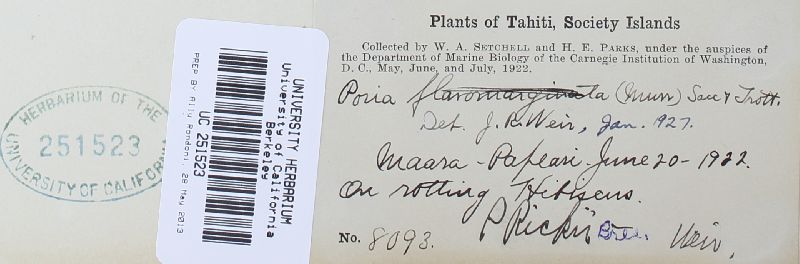 HERBARIUM OF THE
251523
UNIVERSITY OF CALIFORNIA
UNIVERSITY HERBARIUM
University of California
Berkeley
UC 251523
PREP BY Ally Rondoni, 28 May 2013
Plants of Tahiti, Society Islands
Collected by W. A. SETCHELL and H. E. PARKS, under the auspices of
the Department of Marine Biology of the Carnegie Institution of Washington,
D. C., May, June, and July, 1922.
Poria flavomarginata (Murr) Sacc & Trott.
Det. J. R. Weir, Jan. 927.
Maara - Papeari - June 20 - 1922.
On rotting Hibiscus.
No. 8093. P Rickii Bres. Weir.